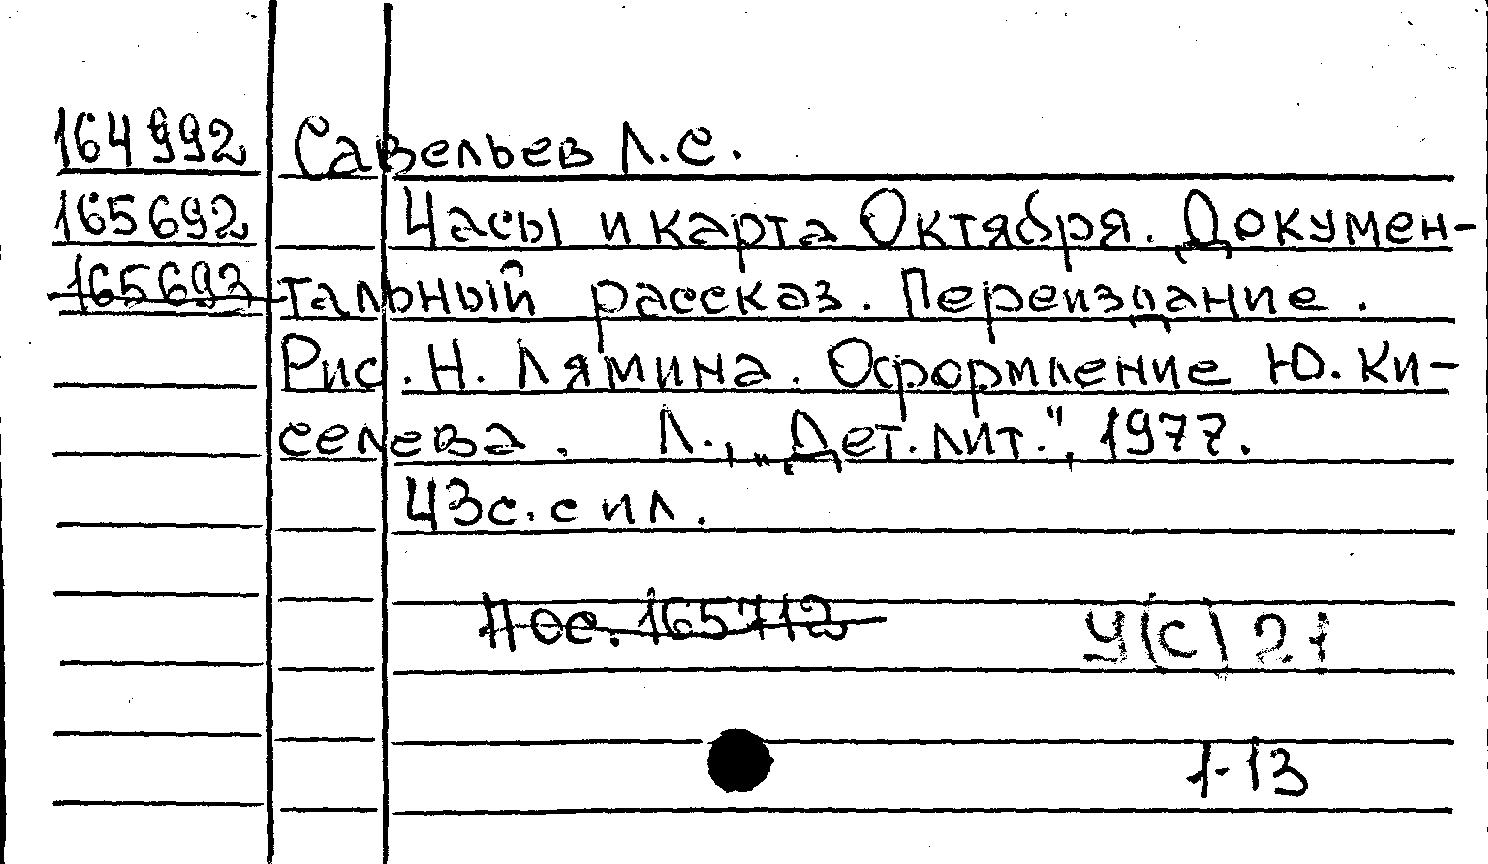 164992 Савельев Л.С.
165692 Часы и карта Октября. Докумен-
165693 тальный рассказ. Переиздание.
Рис. Н. Лямина. Оформление Ю. Ки-
селева. Л., „Дет. лит.", 1977.
43с. с ил.
165712 У(С)21
1-13